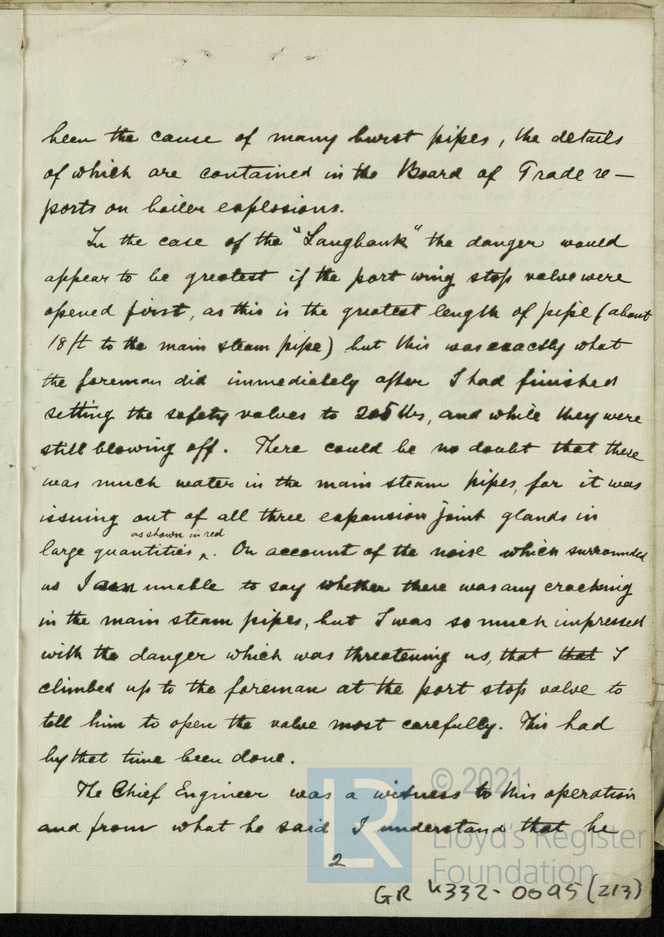 been the cause of many burst pipes, the details
of which are contained in the Board of Trade re-
ports on boiler explosions.
In the case of the "Langbank" the danger would
appear to be greatest if the port wing stop valve were
opened first, as this is the greatest length of pipe (about
18ft to the main steam pipe) but this was exactly what
the foreman did immediately after I had finished
setting the safety valves to 205 lbs, and while they were
still blowing off. There could be no doubt that there
was much water in the main steam pipes, for it was
issuing out of all three expansion joint glands in
as shown in red
large quantities ^. On account of the noise which surrounded
us I am unable to say whether there was any cracking
in the main steam pipes, but I was so much impressed
with the danger which was threatening us, that that I
climbed up to the foreman at the port stop valve to
tell him to open the valve most carefully. This had
by that time been done.
The Chief Engineer was a witness to this operation
and from what he said I understand that he
2
© 2021
LR
Lloyd's Register
Foundation
GR 4332-0095 (213)